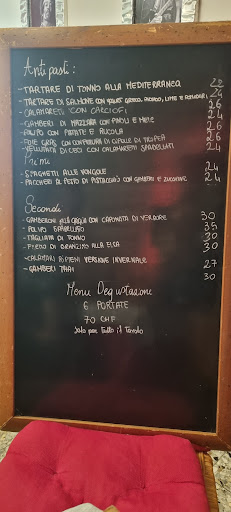 Antipasti:
- TARTARE DI TONNO ALLA MEDITERRANEA 28
- TARTARE DI SALMONE CON YOGURT GRECO, AVOCADO, LIME E 24
- CALAMARETTI CON CARCIOFI 26
- GAMBERI DI MAZZARA CON PINOLI E MELE 24
- POLPO CON PATATE E RUCOLA 26
- FOIE GRAS CON CONFETTURA DI CIPOLLE DI TROPEA 26
- VELLUTATA DI CECI CON CALAMARETTI SPADELLATI 24
Primi
- SPAGHETTI ALLE VONGOLE 24
- PACCHERI AL PESTO DI PISTACCHIO CON GAMBERI E ZUCCHINE 24
Secondi
- GAMBERONI ALLA GRIGLIA CON CAPONATA DI VERDURE 30
- POLPO 35
- TAGLIATA DI TONNO 30
- FILETTO DI BRANZINO ALLA 30
- CALAMARI RIPIENI VERSIONE INVERNALE 27
- GAMBERI THAI 30
Menu Degustazione
6 PORTATE
70 CHF
Solo per tutto il Tavolo